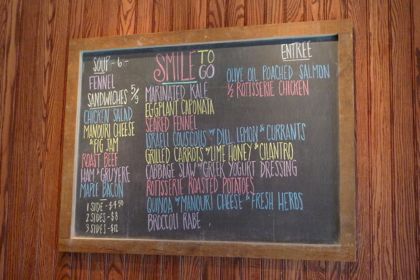 SOUP - 6-
FENNEL
SANDWICHES
CHICKEN SALAD
MANOURI CHEESE
& FIG JAM
ROAST BEEF
HAM & GRUYERE
MAPLE BACON
1 SIDE - $4.50
2 SIDES - $8
3 SIDES - $12
SMILE TO
GO
MARINATED KALE
EGGPLANT CAPONATA
SEARED FENNEL
ISRAELI COUSCOUS w/ DILL, LEMON & CURRANTS
GRILLED CARROTS w/ LIME HONEY & CILANTRO
CABBAGE SLAW w/ GREEK YOGURT DRESSING
ROTISSERIE ROASTED POTATOES
QUINOA w/ MANOURI CHEESE & FRESH HERBS
BROCCOLI RABE
ENTREE
OLIVE OIL POACHED SALMON
1/2 ROTISSERIE CHICKEN